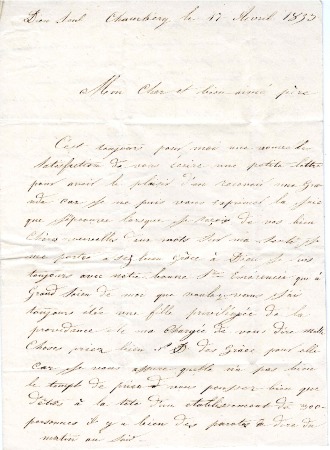 Dieu Seul Chambery le 17 Avril 1853
Mon Cher et bien aimé père
C'est toujours pour moi une nouvelle
satisfaction de vous écrire une petite lettre
pour avoir le plaisir d'en recevoir une
car Je ne puis vous exprimer la Joie
que J'éprouve lorsque Je reçois de vos bien
Chères nouvelles deux mots sur ma Santé Je
me porte assez bien Grâce à Dieu Je suis
toujours avec notre bonne Ste qui à
Grand Soin de moi que voulez-vous J'ai
toujours étée une fille privilégiée de la
providence elle ma Chargée de vous dire mille
Choses priez bien le des Grâce pour elle
car Je vous assure quelle n'a pas bien
le temps de vous pensez bien que
d'être à la tête d'un établissement de
personnes il y a bien des à dire du
matin au Soir